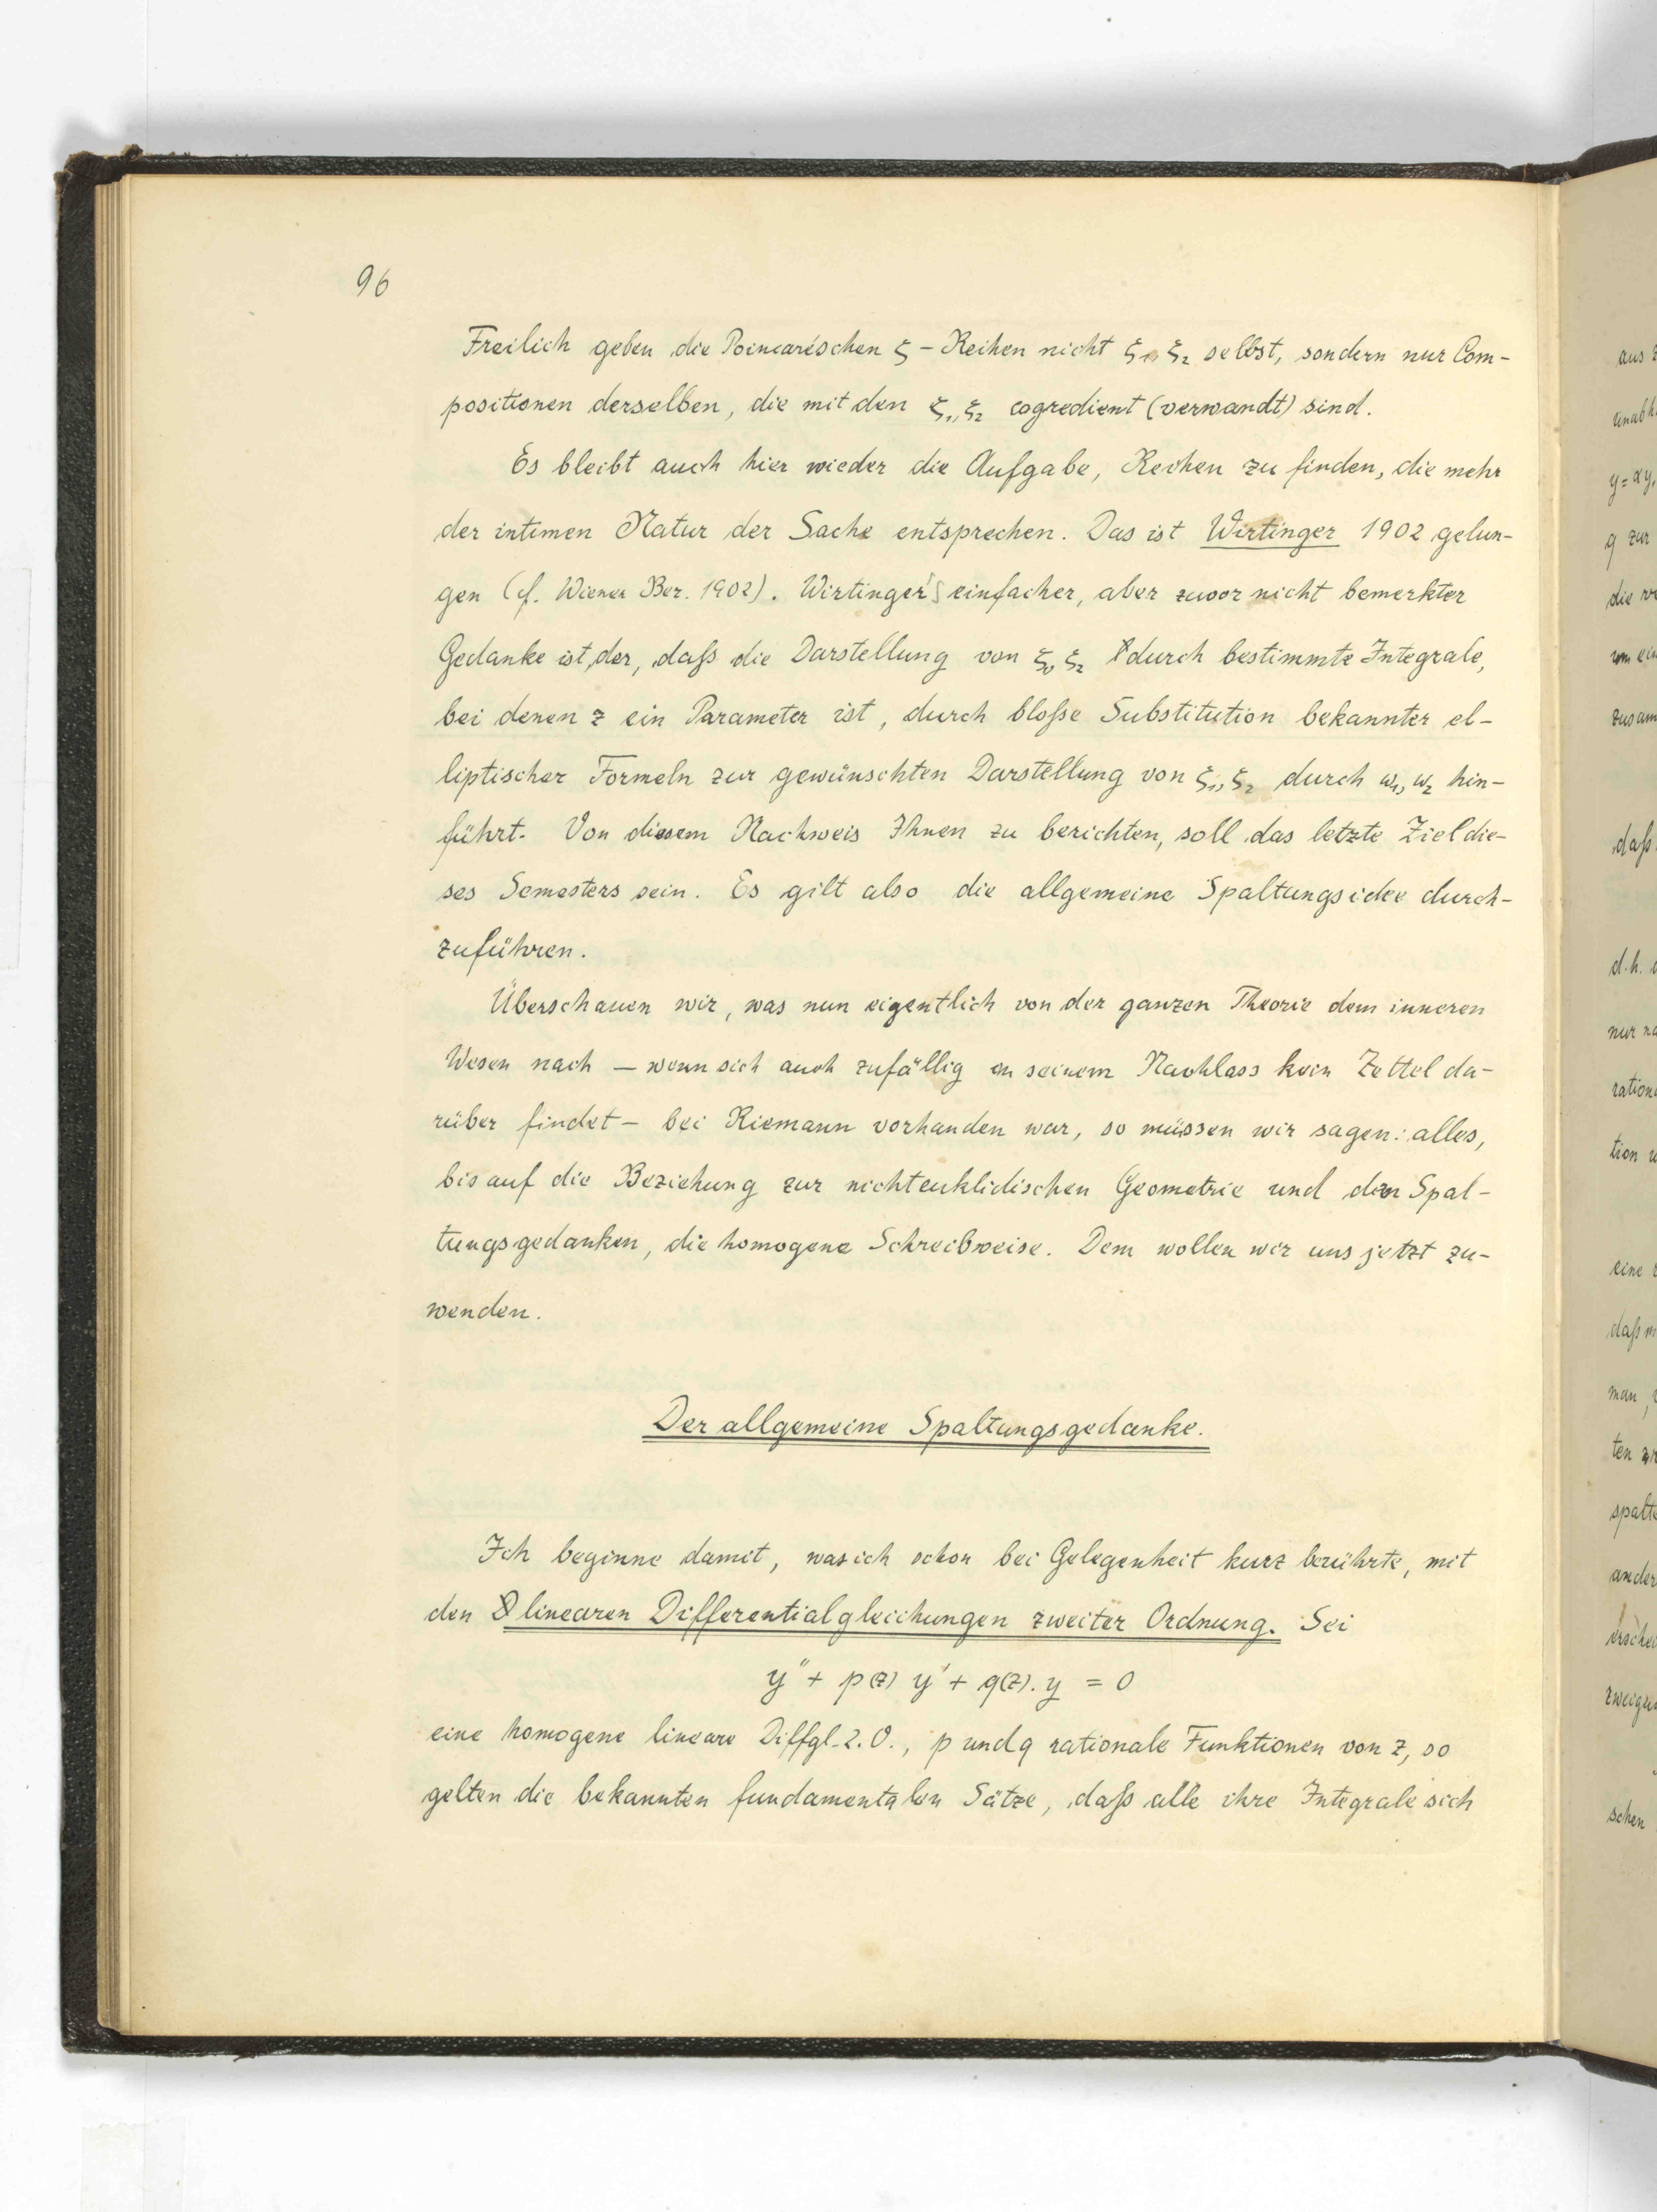 96
Freilich geben die Poincaréschen ζ-Reihen nicht ζ₁, ζ₂ selbst, sondern nur Com-
positionen derselben, die mit den ζ₁, ζ₂ cogredient (verwandt) sind.
Es bleibt auch hier wieder die Aufgabe, Reihen zu finden, die mehr
der intimen Natur der Sache entsprechen. Das ist Wirtinger 1902 gelun-
gen (cf. Wiener Ber. 1902). Wirtinger's einfacher, aber zuvor nicht bemerkter
Gedanke ist, der, daß die Darstellung von ζ₁, ζ₂ durch bestimmte Integrale,
bei denen z ein Parameter ist, durch bloße Substitution bekannter el-
liptischer Formeln zur gewünschten Darstellung von ζ₁, ζ₂ durch ω₁, ω₂ hin-
führt. Von diesem Nachweis Ihnen zu berichten, soll das letzte Ziel die-
ses Semesters sein. Es gilt also die allgemeine Spaltungsidee durch-
zuführen.
Überschauen wir, was nun eigentlich von der ganzen Theorie dem inneren
Wesen nach — wenn sich auch zufällig in seinem Nachlass kein Zettel da-
rüber findet — bei Riemann vorhanden war, so müssen wir sagen: alles,
bis auf die Beziehung zur nichteuklidischen Geometrie und den Spal-
tungsgedanken, die homogene Schreibweise. Dem wollen wir uns jetzt zu-
wenden.
Der allgemeine Spaltungsgedanke.
Ich beginne damit, was ich schon bei Gelegenheit kurz berührte, mit
den linearen Differentialgleichungen zweiter Ordnung. Sei
y'' + p(z) y' + q(z). y = 0
eine homogene lineare Diffgl. 2. O., p und q rationale Funktionen von z, so
gelten die bekannten fundamentalen Sätze, daß alle ihre Integrale sich
aus
y = αy₁
q zur
zusam
daß
d.h.
nur na
ration
tion
eine
daß m
man,
ten
spalt
ander
erschei
zweigun
schen